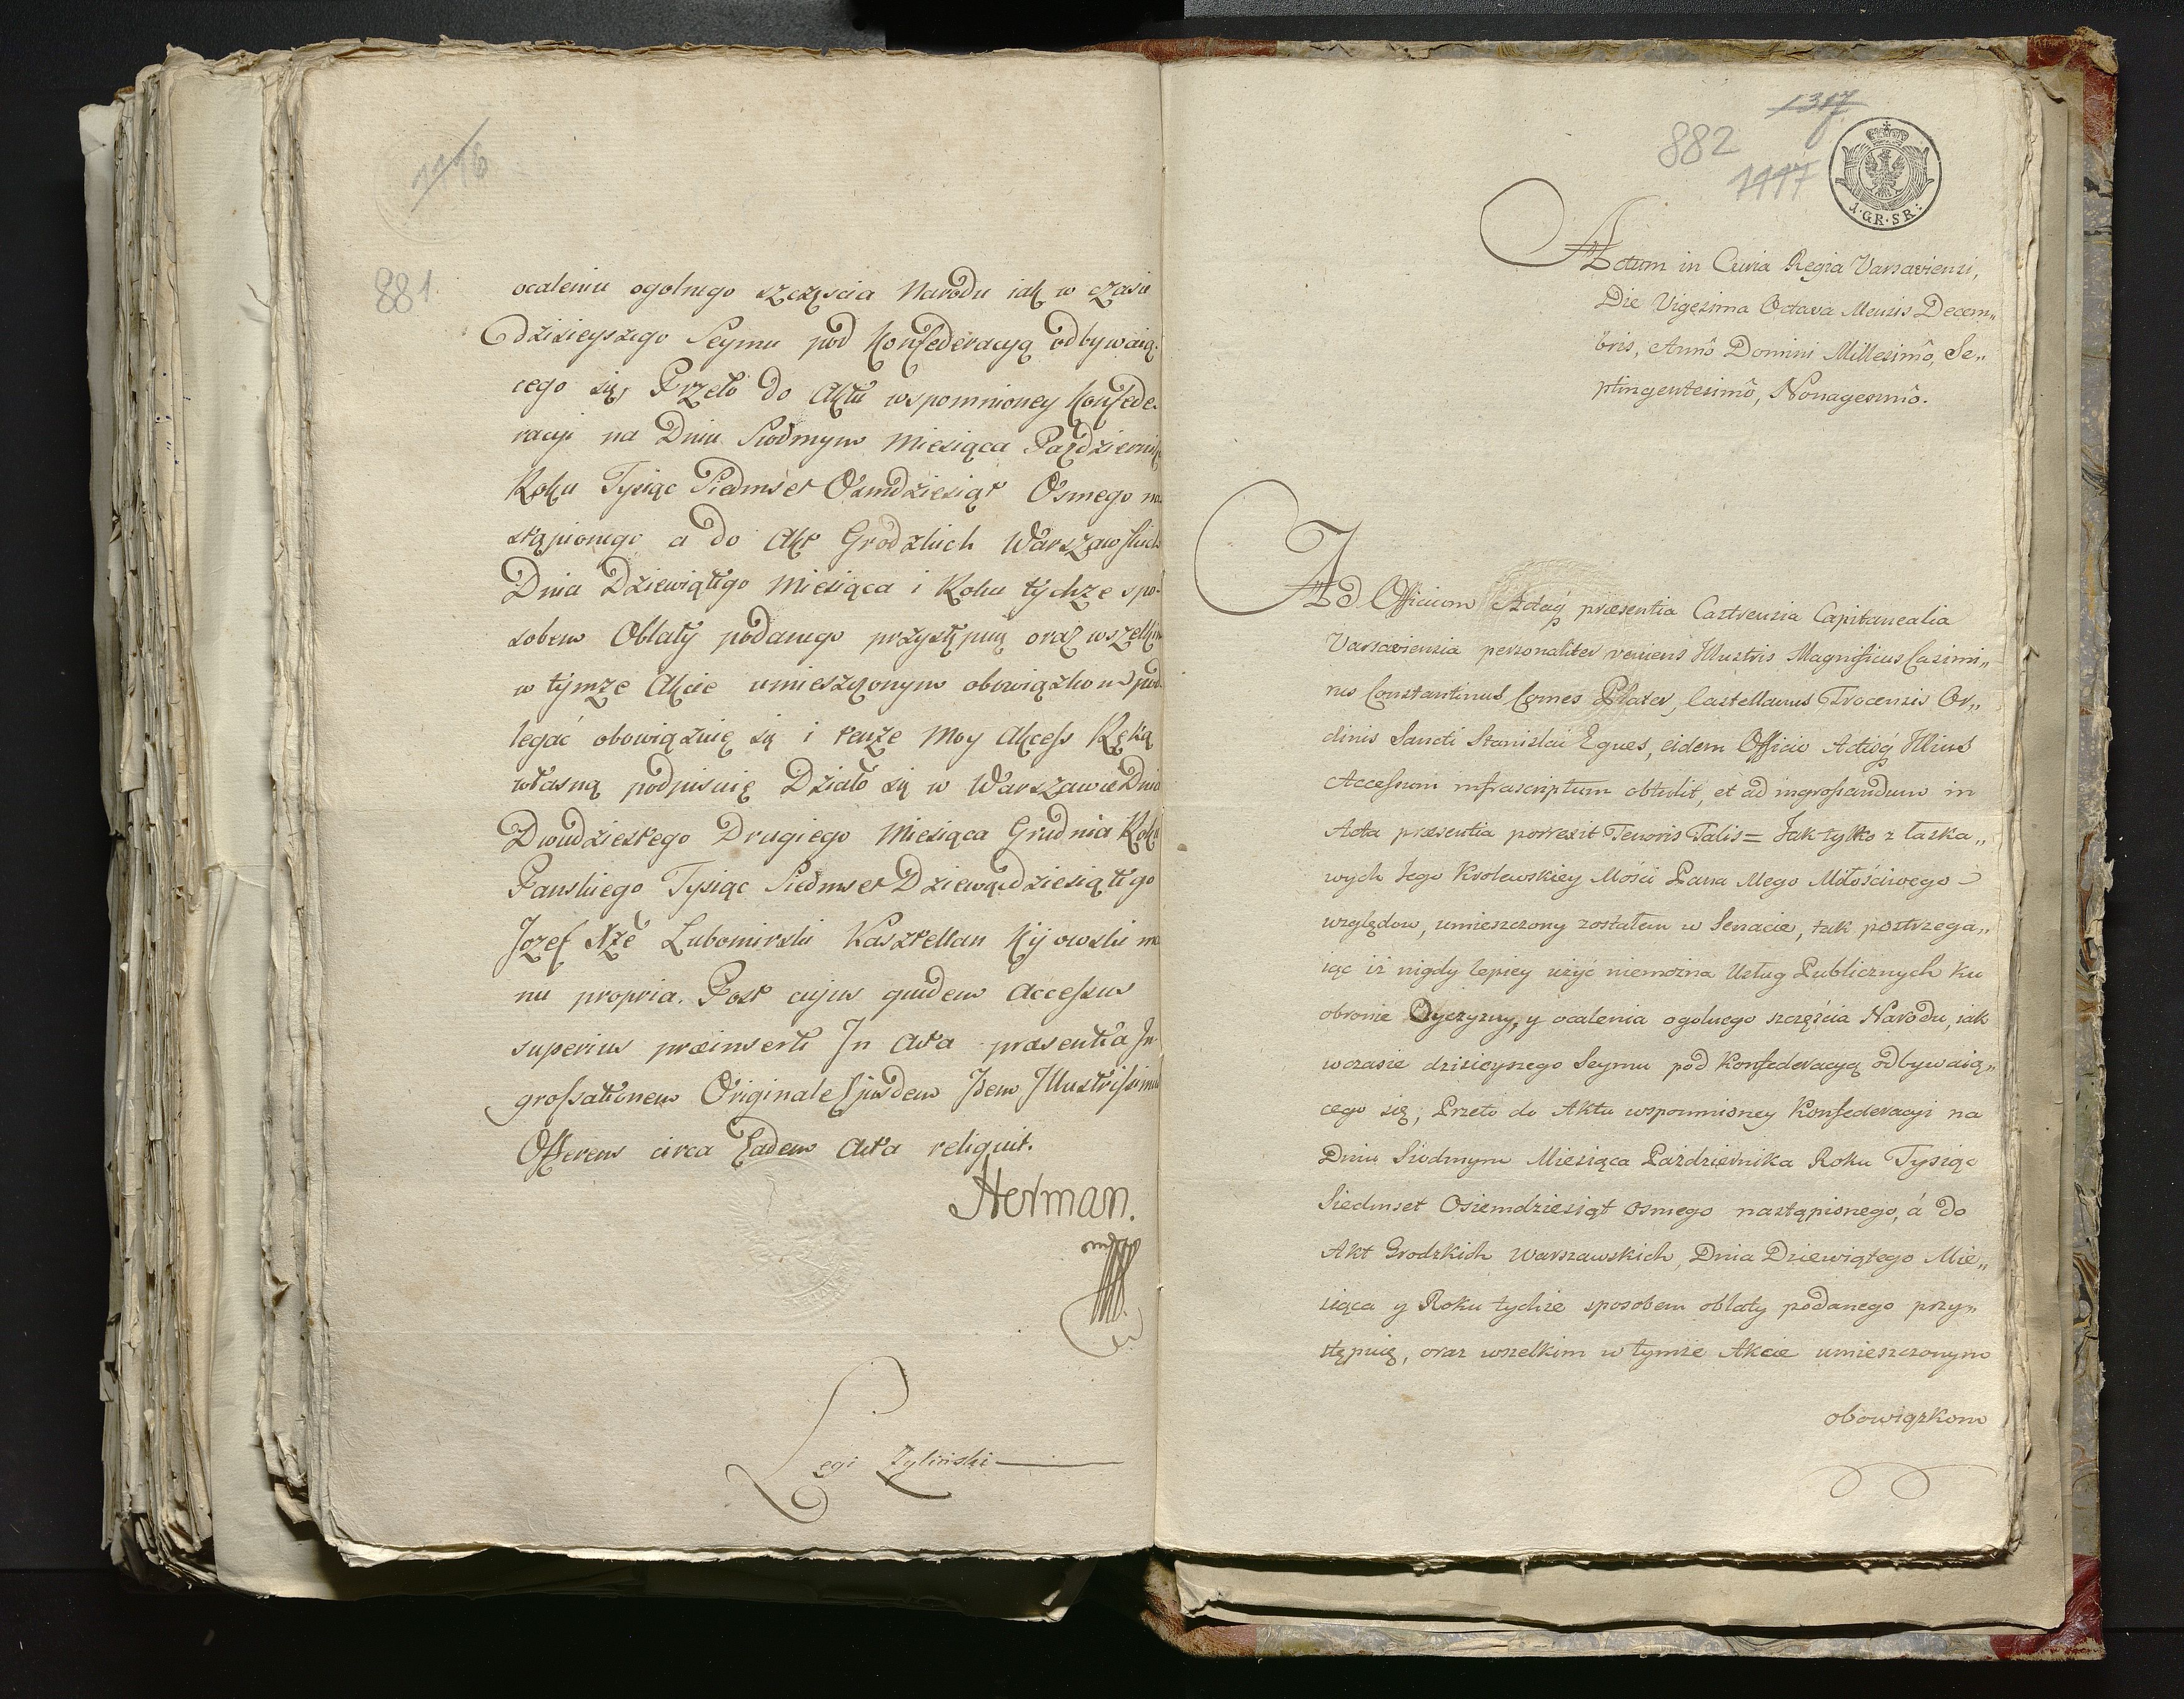 1116
881.
ocaleniu ogolnego szczęscia Narodu iak w czasie
dzisieyszego Seymu pod Konfederacyą odbywaią-
cego się, Przeto do Aktu wspomnioney Konfede-
racyi na Dniu Siodmym Miesiąca Październik
Roku Tysiąc Siedmset Osmdziesiąt Osmego na
stąpionego a do Akt Grodzkich Warszawskich
Dnia Dziewiątego Miesiąca i Roku tychże spo-
sobem Oblaty podanego przystępuię oraz wszelkim
w tymże Akcie umieszczonym obowiązkom pod
legać obowięzuię się i tenże moy Akcess Ręką
własną podpisuię Działo się w Warszawie Dnia
Dwudziestego Drugiego Miesiąca Grudnia Roku
Panskiego Tysiąc Siedmset Dziewiędziesiątego
Jozef Xże Lubomirski Kasztellan Kijowski ma
nu propria. Post cujus quidem Accessus
superius præinserti In Acta præsentia In-
grossationem Originale Ejusdem Idem Illustrissimus
Offerens circa Eadem Acta reliquit.
Herman.
mpp
Legi Zyliński
1317
882
1117
1·GR·SR:
Actum in Curia Regia Varsaviensi,
Die Vigesima Octava Mensis Decem„
bris, Annô Domini Millesimô, Se„
ptingentesimô, Nonagesimô.
Ad Officium Actaq præsentia Castrensia Capitanealia
Varsaviensia personaliter veniens Illustris Magnificus Casimi„
rus Constantinus Comes Plater, Castellanus Trocensis Or„
dinis Sancti Stanislai Eques, eidem Officio Actisq Illius
Accessum infrascriptum obtulit, et ad ingrossandum in
Acta præsentia porrexit Tenoris Talis = Jak tylko z łaska„
wych Jego Krolewskiey Mości Pana Mego Miłościwego
względow, umieszczony zostałem w Senacie, tak postrzega„
iąc iż nigdy lepiey użyć niemożna Usług Publicznych ku
obronie Oyczyzny, y ocalenia ogolnego szczęścia Narodu, iak
wczasie dzisieyszego Seymu pod Konfederacyą odbywaią„
cego się; Przeto do Aktu wspomnioney Konfederacyi na
Dniu Siodmym Miesiąca Października Roku Tysiąc
Siedmset Osiemdziesiąt osmego nastąpionego, á do
Akt Grodzkich Warszawskich, Dnia Dziewiątego Mie„
siąca y Roku tychże sposobem oblaty podanego przy„
stępuię, oraz wszelkim w tymże Akcie umieszczonym
obowiązkom